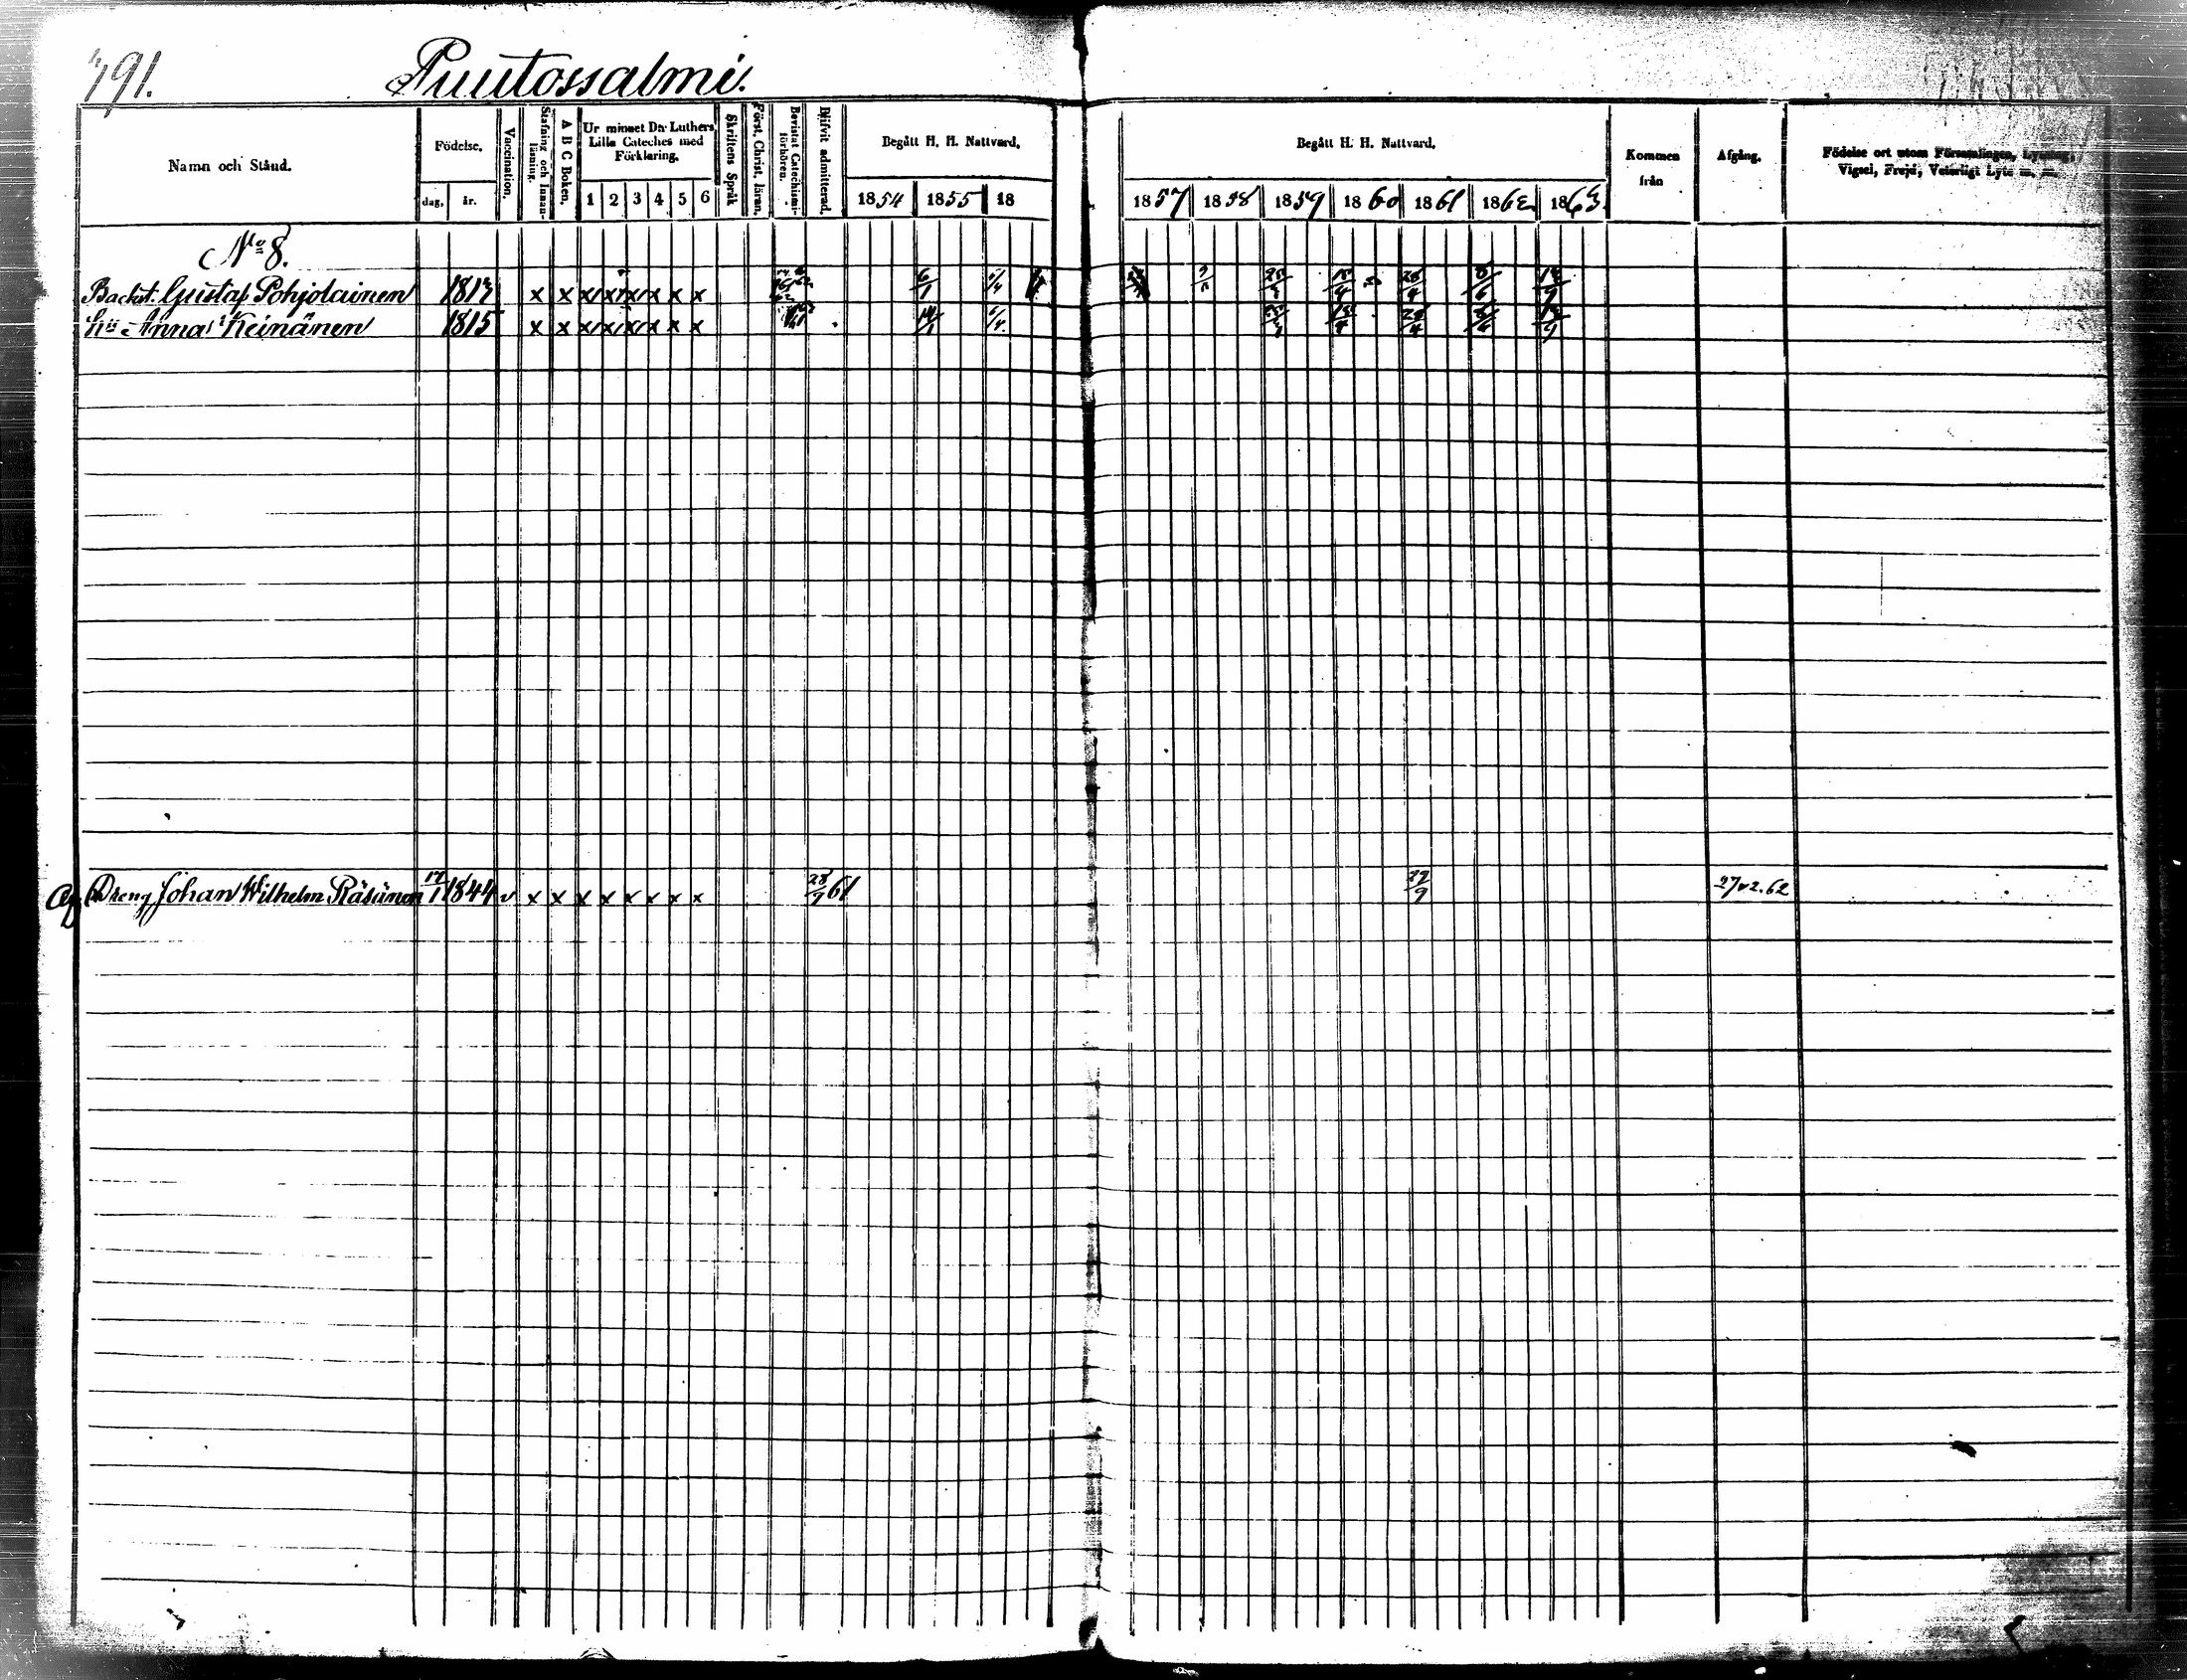 791.
Puutossalmi.
Namn och Stånd.
Födelse.
dag. år.
Vaccination.
Stafning och Innan-läsning.
A B C Boken.
Ur minnet Dr Luthers Lilla Cateches med Förklaring.
1 2 3 4 5 6
Skriftens Språk
Först. Christ. läran.
Bevistat Catechismi-förhören.
Blifvit admitterad.
Begått H. H. Nattvard.
1854 1855 18
Begått H. H. Nattvard.
1857 1858 1859 1860 1861 1862 1863.
Kommen från
Afgång.
Födelse ort utom Församlingen, Lysning, Vigsel, Frejd, Veterligt Lyte m. m.
No 8.
Backst. Gustaf Pohjolainen x x x x x x x x 6/1
hu Anna Keinänen 1815 x x x x x x x x 14/1
Af Dreng Johan Wilhelm Räsänen 17/1 1844 v x x x x x x x x 28/9 61 22/9